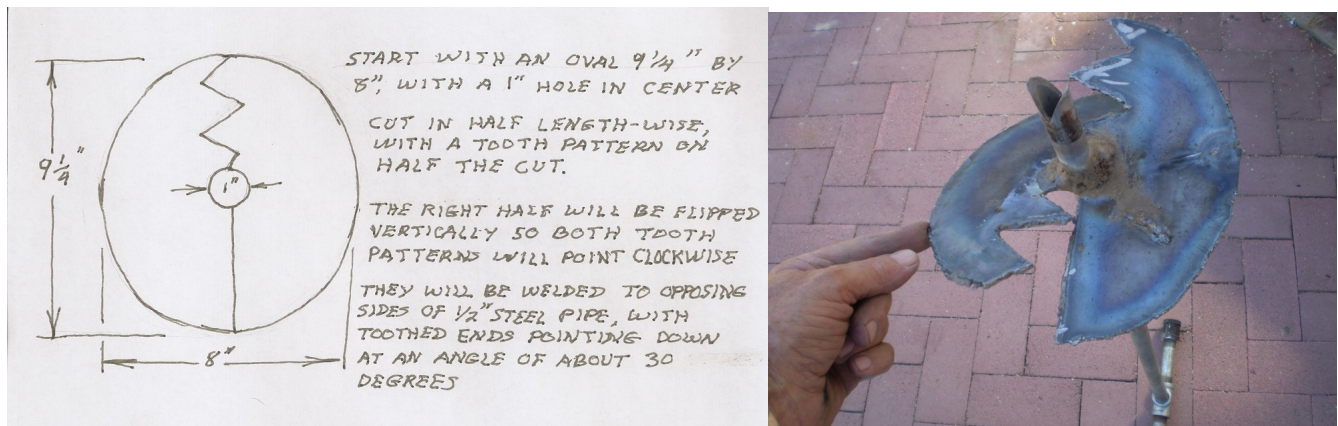 START WITH AN OVAL 9 1/4" BY
8", WITH A 1" HOLE IN CENTER
CUT IN HALF LENGTH-WISE,
WITH A TOOTH PATTERN ON
HALF THE CUT.
9 1/4"
1"
THE RIGHT HALF WILL BE FLIPPED
VERTICALLY SO BOTH TOOTH
PATTERNS WILL POINT CLOCKWISE
THEY WILL BE WELDED TO OPPOSING
SIDES OF 1/2" STEEL PIPE, WITH
TOOTHED ENDS POINTING DOWN
AT AN ANGLE OF ABOUT 30
DEGREES
8"